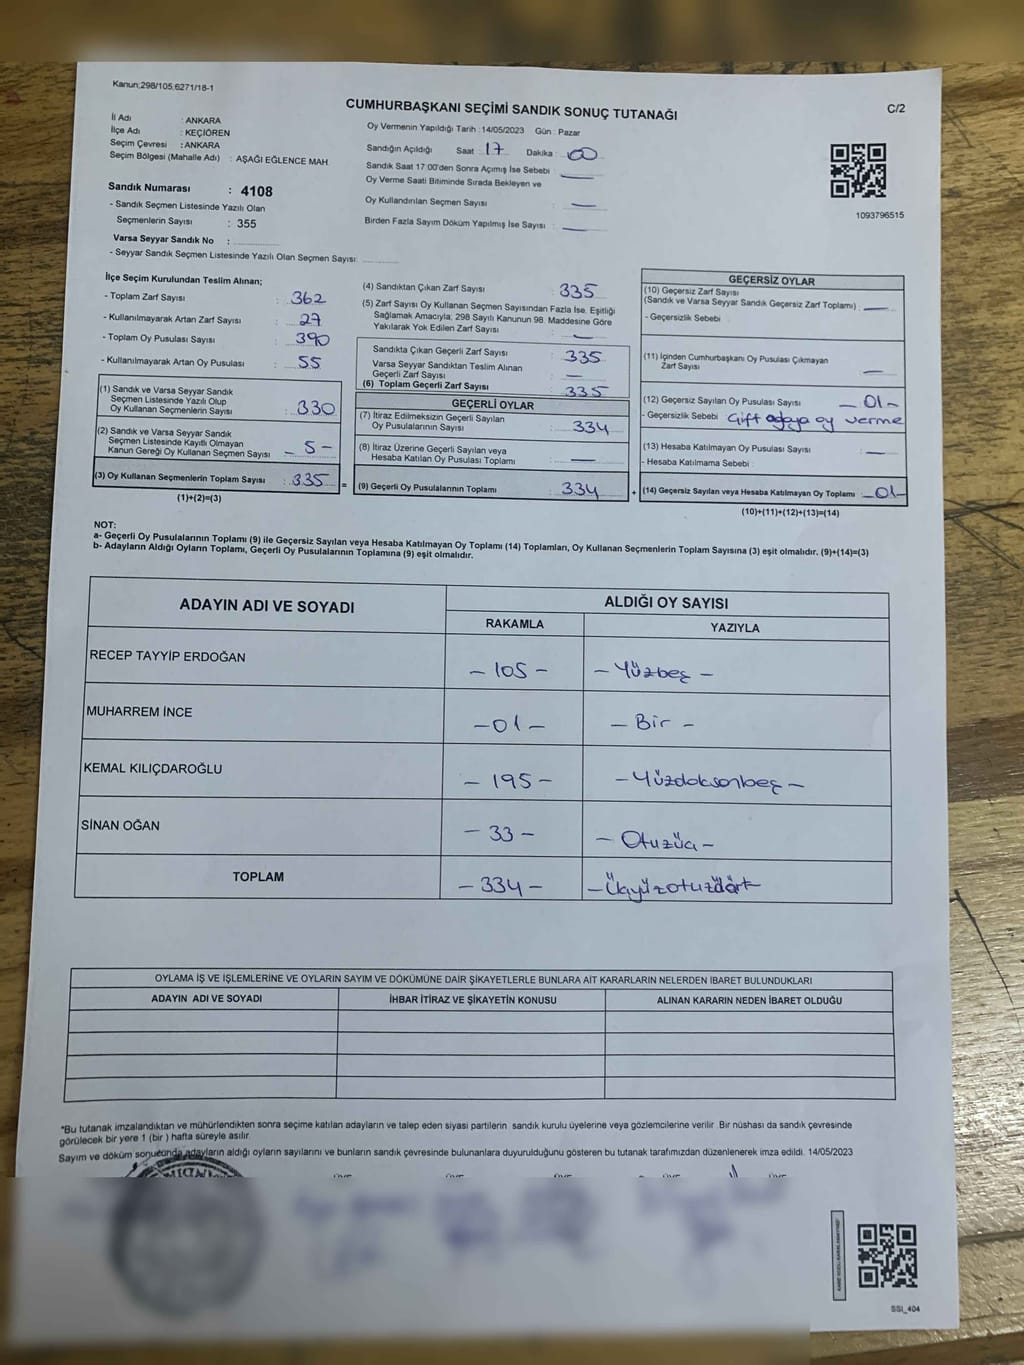 Kanun:298/105,6271/18-1
CUMHURBAŞKANI SEÇİMİ SANDIK SONUÇ TUTANAĞI
C/2
İl Adı : ANKARA
İlçe Adı : KEÇİÖREN
Seçim Çevresi : ANKARA
Seçim Bölgesi (Mahalle Adı) : AŞAĞI EĞLENCE MAH.
Sandık Numarası : 4108
- Sandık Seçmen Listesinde Yazılı Olan
Seçmenlerin Sayısı : 355
Varsa Seyyar Sandık No :
- Seyyar Sandık Seçmen Listesinde Yazılı Olan Seçmen Sayısı:
Oy Vermenin Yapıldığı Tarih : 14/05/2023 Gün : Pazar
Sandığın Açıldığı Saat : 17 Dakika : 00
Sandık Saat 17:00'den Sonra Açımış İse Sebebi
Oy Verme Saati Bitiminde Sırada Bekleyen ve
Oy Kullandırılan Seçmen Sayısı : —
Birden Fazla Sayım Döküm Yapılmış İse Sayısı : —
1093796515
İlçe Seçim Kurulundan Teslim Alınan;
- Toplam Zarf Sayısı : 362
- Kullanılmayarak Artan Zarf Sayısı : 27
- Toplam Oy Pusulası Sayısı : 390
- Kullanılmayarak Artan Oy Pusulası : 55
(1) Sandık ve Varsa Seyyar Sandık
Seçmen Listesinde Yazılı Olup
Oy Kullanan Seçmenlerin Sayısı : 330
(2) Sandık ve Varsa Seyyar Sandık
Seçmen Listesinde Kayıtlı Olmayan
Kanun Gereği Oy Kullanan Seçmen Sayısı - 5 -
(3) Oy Kullanan Seçmenlerin Toplam Sayısı : 335
(1)+(2)=(3)
=
(4) Sandıktan Çıkan Zarf Sayısı : 335
(5) Zarf Sayısı Oy Kullanan Seçmen Sayısından Fazla İse, Eşitliği
Sağlamak Amacıyla, 298 Sayılı Kanunun 98. Maddesine Göre
Yakılarak Yok Edilen Zarf Sayısı : —
Sandıkta Çıkan Geçerli Zarf Sayısı : 335
Varsa Seyyar Sandıktan Teslim Alınan
Geçerli Zarf Sayısı : —
(6) Toplam Geçerli Zarf Sayısı : 335
GEÇERLİ OYLAR
(7) İtiraz Edilmeksizin Geçerli Sayılan
Oy Pusulalarının Sayısı : 334
(8) İtiraz Üzerine Geçerli Sayılan veya
Hesaba Katılan Oy Pusulası Toplamı : —
(9) Geçerli Oy Pusulalarının Toplamı : 334
+
GEÇERSİZ OYLAR
(10) Geçersiz Zarf Sayısı
(Sandık ve Varsa Seyyar Sandık Geçersiz Zarf Toplamı) : —
- Geçersizlik Sebebi
(11) İçinden Cumhurbaşkanı Oy Pusulası Çıkmayan
Zarf Sayısı : —
(12) Geçersiz Sayılan Oy Pusulası Sayısı - 01 -
- Geçersizlik Sebebi Çift adaya oy verme
(13) Hesaba Katılmayan Oy Pusulası Sayısı : —
- Hesaba Katılmama Sebebi
(14) Geçersiz Sayılan veya Hesaba Katılmayan Oy Toplamı : -01-
(10)+(11)+(12)+(13)=(14)
NOT:
a- Geçerli Oy Pusulalarının Toplamı (9) ile Geçersiz Sayılan veya Hesaba Katılmayan Oy Toplamı (14) Toplamları, Oy Kullanan Seçmenlerin Toplam Sayısına (3) eşit olmalıdır. (9)+(14)=(3)
b- Adayların Aldığı Oyların Toplamı, Geçerli Oy Pusulalarının Toplamına (9) eşit olmalıdır.
ADAYIN ADI VE SOYADI
ALDIĞI OY SAYISI
RAKAMLA YAZIYLA
RECEP TAYYİP ERDOĞAN - 105 - - Yüzbeş -
MUHARREM İNCE -01- - Bir -
KEMAL KILIÇDAROĞLU - 195 - - Yüzdoksanbeş -
SİNAN OĞAN - 33 - - Otuzüç -
TOPLAM - 334 - - Üçyüzotuzdört
OYLAMA İŞ VE İŞLEMLERİNE VE OYLARIN SAYIM VE DÖKÜMÜNE DAİR ŞİKAYETLERLE BUNLARA AİT KARARLARIN NELERDEN İBARET BULUNDUKLARI
ADAYIN ADI VE SOYADI İHBAR İTİRAZ VE ŞİKAYETİN KONUSU ALINAN KARARIN NEDEN İBARET OLDUĞU
*Bu tutanak imzalandıktan ve mühürlendikten sonra seçime katılan adayların ve talep eden siyasi partilerin sandık kurulu üyelerine veya gözlemcilerine verilir .Bir nüshası da sandık çevresinde
görülecek bir yere 1 (bir ) hafta süreyle asılır.
Sayım ve döküm sonucunda adayların aldığı oyların sayılarını ve bunların sandık çevresinde bulunanlara duyurulduğunu gösteren bu tutanak tarafımızdan düzenlenerek imza edildi. 14/05/2023
SSI_404